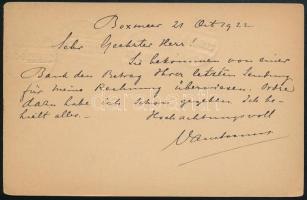 Boxmeer 21 Oct 1922
Sehr Geehrter Herr!
Sie bekommen von einer
Bank den Betrag Ihrer letzten Sendung
für meine Rechnung überwiesen. Ordre
dazu habe ich schon gegeben. Ich be-
hielt alles. –
Hochachtungsvoll